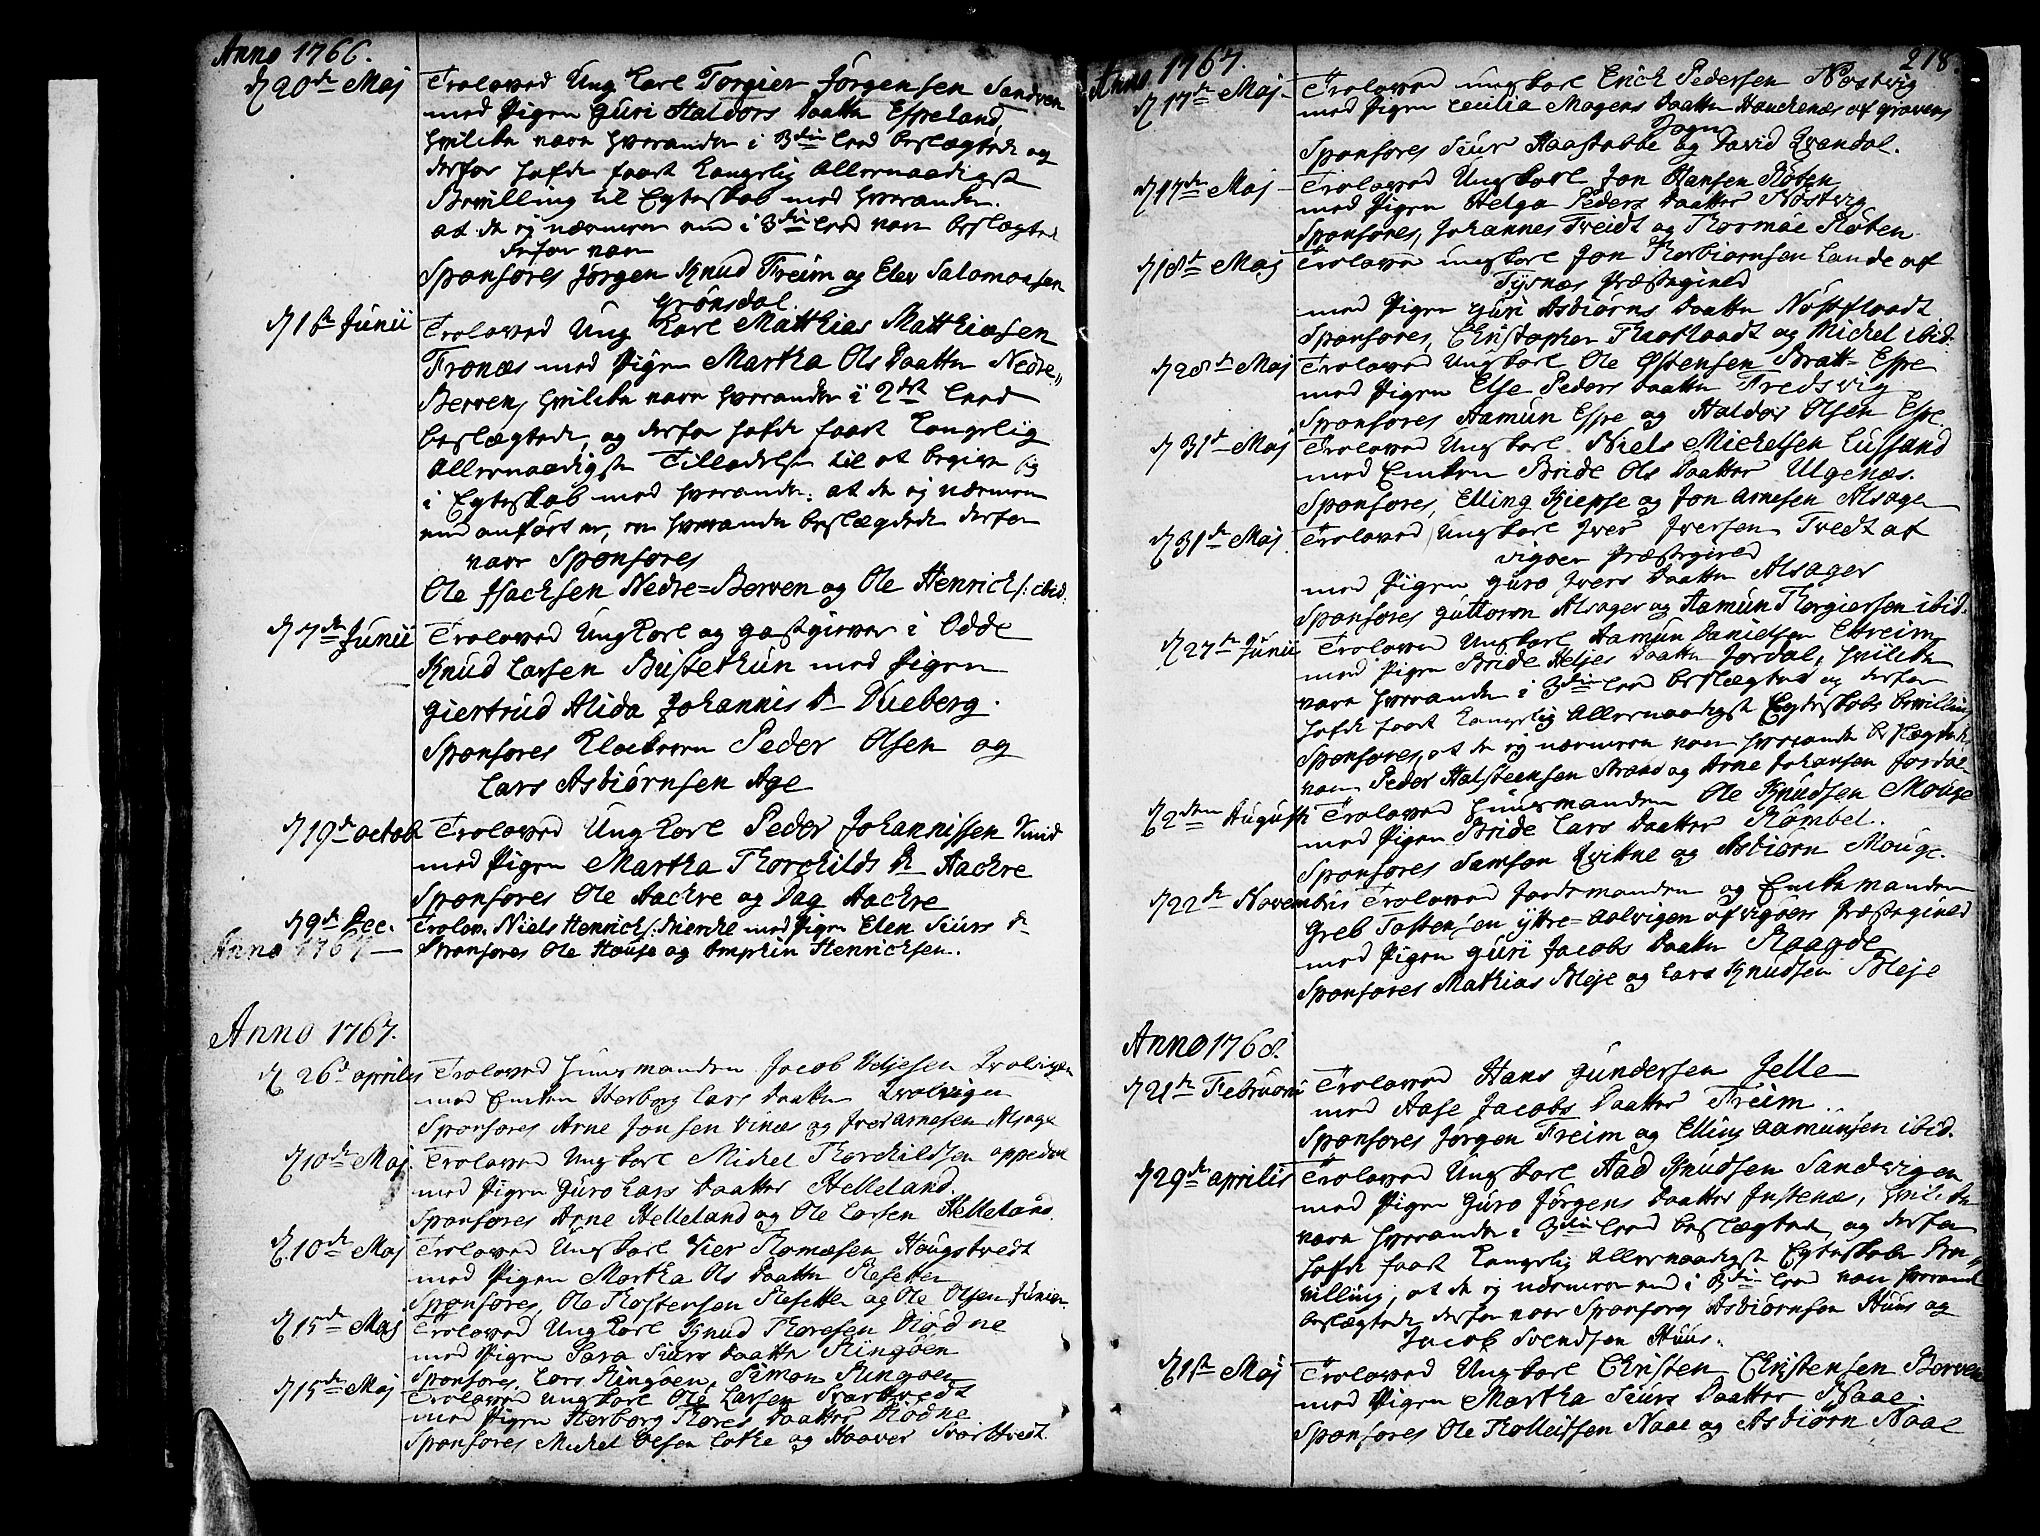 Anno 1766.
d 20de Maj Troloved Ung Karl Torgier Jörgensen Sandven
med Pigen Guri Haldors Daatter Espeland
hvilcke vare hverandre i 3die Leed beslægtede og
derfor hafde faaet Kongelig Allernaadigst
Bevilling til Egteskab med hverandre.
at de ej nærmere end i 3die Leed vare beslægtede
derfor vare
Sponsores Jörgen Knud Freim og Elev Salomonsen
Grönsdal.
d 1ste Junii Troloved Ung Karl Matthias Matthiasen
Tronæs med Pigen Martha Ols Daatter Nedre
Berven, hvilcke vare hverandre i 2det Leed
beslægtede, og derfor hafde faaet Kongelig
Allernaadigste Tilladelse til at begive sig
i Egteskab med hverandre. at de ej nærmere
end anfört er, ere hverandre beslægtede derfor
vare Sponsores
Ole Isachsen Nedre=Berven og Ole Henrichs: ibid:
d 7de Junii Troloved Ung Karl og gæstgiever i Odde
Knud Larsen Bustethun med Pigen
Giertrud Alida Johannis D Dueberg.
Sponsores Klockeren Peder Olsen og
Lars Asbiörnsen Age
d 19de octob Troloved Ung Karl Peder Johannissen
med Pigen Martha Thorchilds D Aachre
Sponsores Ole Aachre og Dag Aachre
d 9de Dec. Trolov. Niels Henrichs: med Pigen Elen Siurs d
Anno 1767 — Sponsores Ole House og Henrichsen.
Anno 1767.
d 26de aprilis Troloved Huusmanden Jacob Heljesen
med Encken Herborg Lars Daatter
Sponsores Arne Jonsen Vinæs og Iver Arnesen Alsage
d 10de Maj Trolovet Ungkarl Michel Thorchildsen oppedal
med Pigen Guro Lars Daatter Helleland
Sponsores Arne Helleland og Ole Larsen Helleland
d 10de Maj Trolovet Ungkarl Vier Thomæsen Hougstvedt
med Pigen Martha Ols Daatter Resetter
Sponsores, Ole Thostensen Resetter og Ole Olsen
d 15de Maj Trolovet Ung Karl Knud Thoresen Diödne
med Pigen Sara Siurs Daatter Ringöen
Sponsores, Lars Ringöen, Simon Ringöen
d 15de Maj Trolovet ungkarl Ole Larsen Svartvedt
med Pigen Herborg Thores Daatter Diödne
Sponsores Michel Olsen Lothe og Haaver Svartvedt
Anno 1767. 218.
d 17de Maj Trolovet ungkarl Erich Pedersen Nöstvig
med Pigen Cecilia Magens Daatter Hauchenæs af Gravens
Sogn
Sponsores Siur Haastabbe og David Qvandal.
d 17de Maj Trolovet Ungkarl Jon Hansen Röten
med Pigen Helga Peders Daatter Nöstvig
Sponsores, Johannes Tveidt og Thormoe Röten
d 18de Maj Trolovet ungkarl Jon Thorbiörnsen Lande af
Tysnæs Præstegield
med Pigen Guri Asbiörns Daatter Nöstflaadt
Sponsores, Christopher Thraflaadt og Michel ibid.
d 28de Maj Trolovet Ungkarl Ole Östensen Bratt=Espe
med Pigen Else Peders Daatter Tredsvig
Sponsores Aamun Espe og Haldor Olsen Espe.
d 31de Maj Trolovet Ungkarl Niels Michelsen Lussand
med Encken Bride Ols Daatter Ulgenæs.
Sponsores, Elling Kiepse og Jon Arnesen Alsage
d 31de Maj Trolovet Ungkarl Iver Iversen Tvedt af
vigöer Præstegield
med Pigen Guro Ivers Daatter Alsager
Sponsores Guttorm Alsager og Aamun Thorgiersen ibid.
d 27de Junii Trolovet Ungkarl Aamun Danielsen Eitreim
med Pigen Bride Heljes Daatter Jordal, hvilcke
vare hverandre i 3die Leed beslægtet og derfor
hafde faaet Kongelig Allernaadigst Egteskabs bevilling
Sponsores, at de ej nærmere vare hverandre beslægtede
vare Peder Halsteensen Straae og Arne Johansen Jordal
d 2den Augusti Trolovet Huusmanden Ole Knudsen Mouge
med Pigen Bride Lars Daatter Röinbel.
Sponsores Samson Qvithne og Asbiörn Mouge.
d 22de Novembris Trolovet Jordemanden og Enckemanden
Greb Tosten/en yttre=aalvigen af Vigöers Præstegield
med Pigen Guri Jacobs Daatter Raagde
Sponsores Mathias Bleje og Lars Knudsen Bleje
Anno 1768.
d 21de Februarii Trolovet Hans Gundersen Jelle
med Aase Jacobs Daatter Freim.
Sponsores Jörgen Freim og Elling Aamunsen ibid.
d 29de aprilis Trolovet Ungkarl Aad Knudsen Sandvigen
med Pigen Guro Jörgens Daatter Instenæs, hvilcke
vare hverandre i 3die Leed beslægtet, og derfor
hafde faaet Kongelig Allernaadigst Egteskabs Be=
villing, at de ej nærmere end i 3die Leed vare hverandre
beslægtede derfor vare Sponsores Asbiörnsen Huus og
Jacob Svendsen Huus.
d 1ste Maj Trolovet Ungkarl Christen Christensen Berven
med Pigen Martha Siurs Daatter Naae.
Sponsores Ole Tholleifsen Naae og Asbiörn Naae